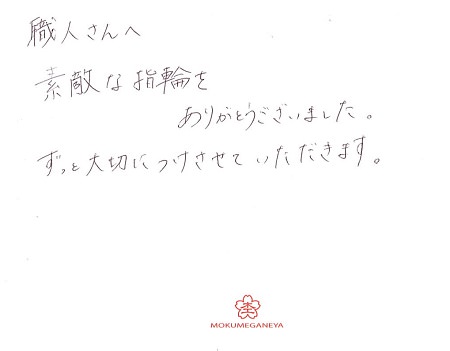 職人さんへ
素敵な指輪を
ありがとうございました。
ずっと大切につけさせていただきます。
MOKUMEGANEYA